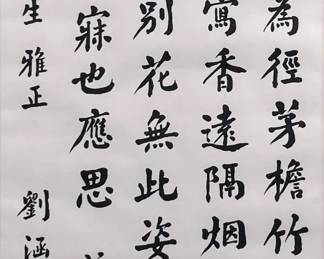 為徑茅檐竹
窵香遠隔烟
別花無此姿
寐也應思
生雅正
劉涵